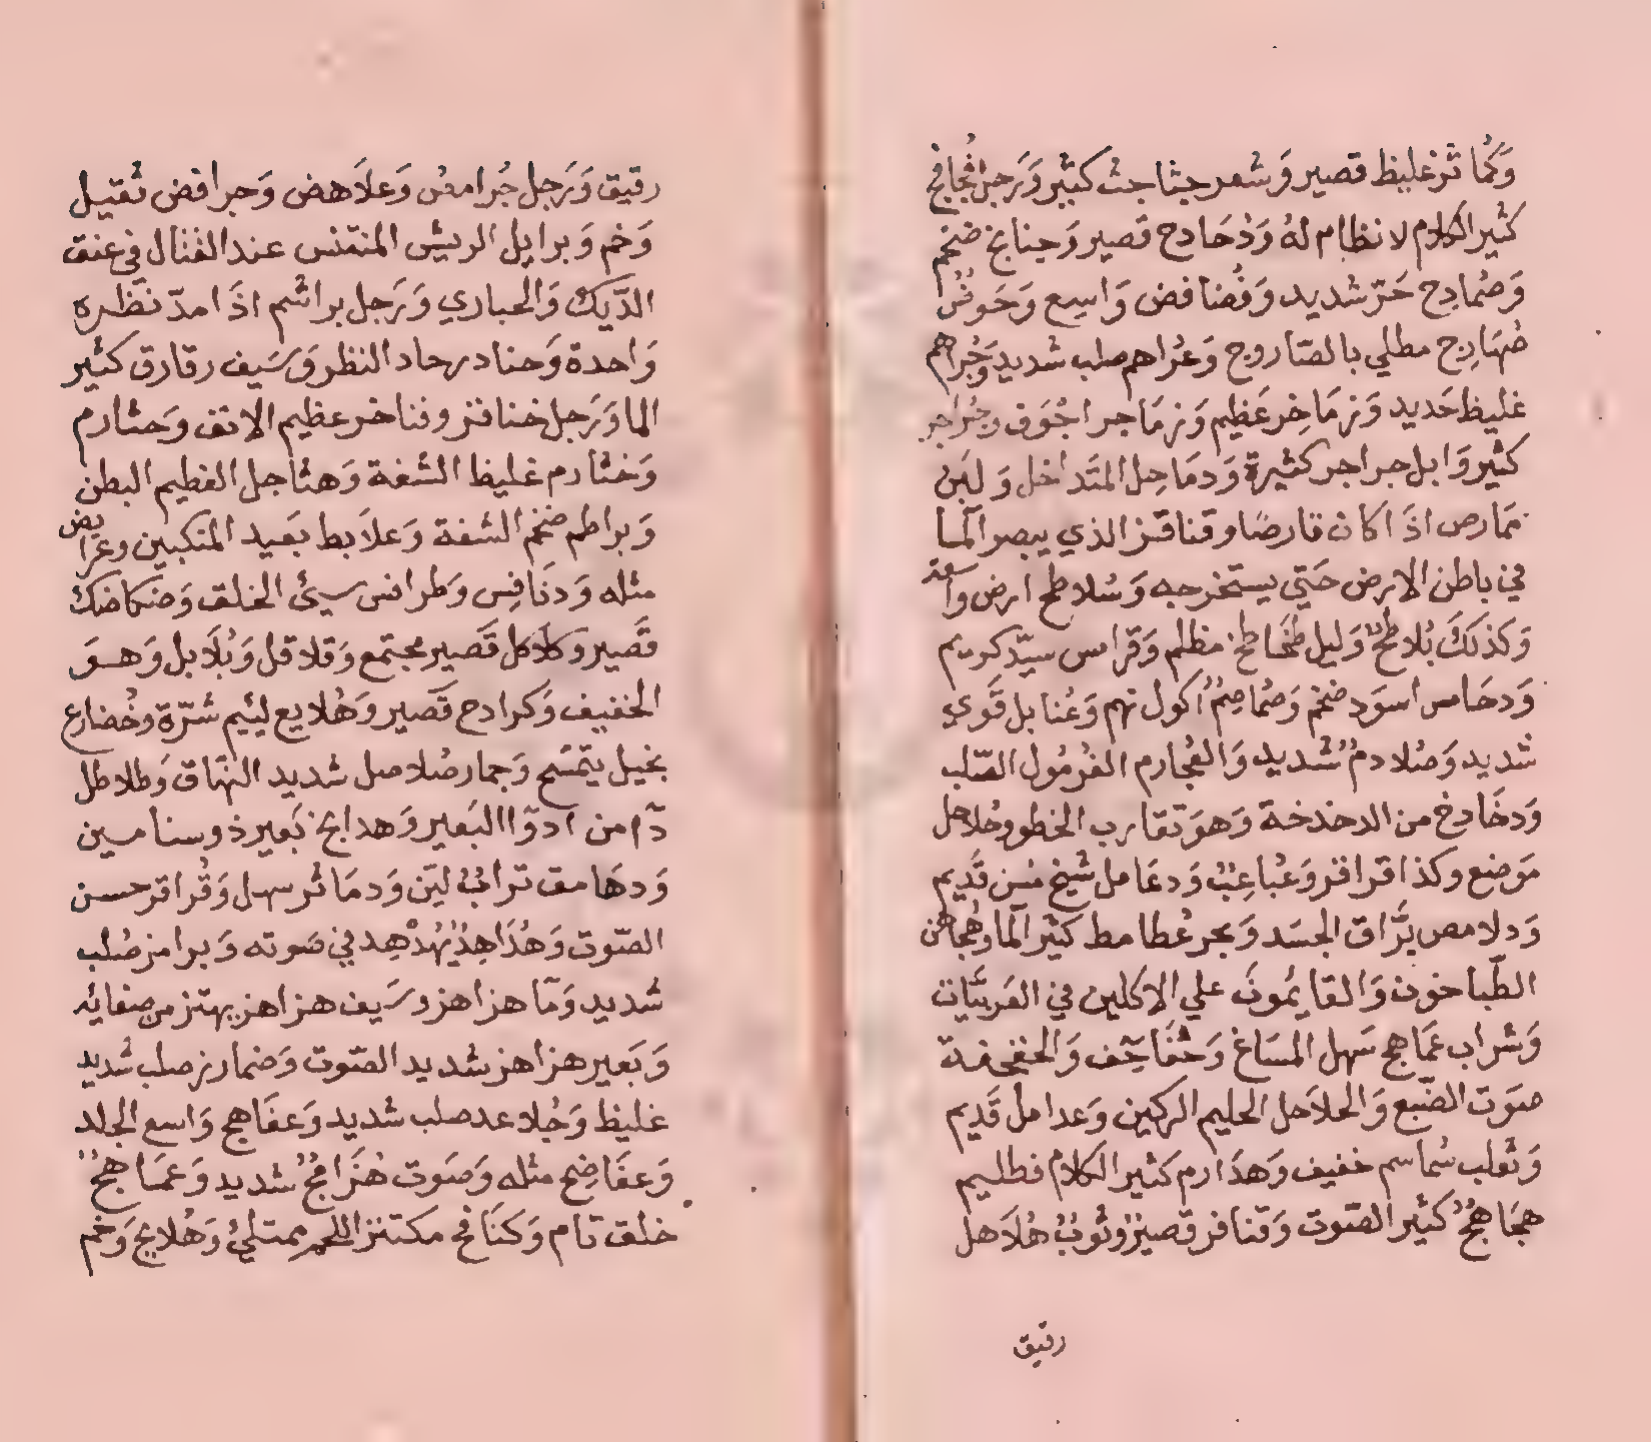 وَكُمَاثر غليظ قصير وَشعر جثاجث كثير وَرَجل بُجابج
كثير الكلام لا نظام لهُ وَدُحَادح قصير وَجنابخ ضخم
وَصُمادح حَرّ شديد وَفُضافض وَاسِع وَحَوض
صُهَارِج مطلي بالصّاروج وَعُراهم صلب شديد وَجُراهم
غليظ حَديد وَزمَاخِر عَظيم وَزمَاجر اجْوَف وجُراجر
كثير وَابل جراجر كثيرة وَدمَاحِل المتَداخل وَلبَن
قمَارص اذَا كان قارصًا وقناقز الذي يبصر المآ
في باطن الارض حَتي يستخرجه وَسُلاطح ارض واسعة
وَكذلكَ بُلاطح وَليل طخاطخ مظلم وَقرامس سيّد كريم
وَدحَامس اسوَد ضخم وَصُمَاصِمٌ اكول نهم وَعُنابل قَوي
شديد وَصُلادمٌ شديد وَالعُجارم الغُرمُول الصّلب
وَدخَادخ من الدخدخة وَهوَ تقارب الخطو وحُلاحل
مَوضع وكذا قراقر وَعُباعِبٌ وَدعَامل شيخ مُسن قَديم
وَدلامص برَّاق الجسَد وَبحر غُطامط كثير المآ وهُجاهن
الطّباخون وَالقايمُونَ علي الاكلين في العَربيَّات
وَشراب عمَاهج سَهل المسَاغ وَخفَاخف وَالخفخفة
صوَت الضّبع وَالحلاَحل الحليم الركين وَعدامل قَديم
وَثعلب سُماسم خفيف وَهذَارم كثير الكلام فطليم
هجَاهجٌ كثير الصّوت وَقنافر قصير وثوبٌ هُلاَهل
رقيق
رقيق وَرَجل جُرامض وَعلاَهض وَجرافض ثقيل
وَخم وَبرايل الريش المنتفش عند القتال في عنق
الدّيك وَالحباري وَرَجل براشم اذَا مدّ نظَره
وَاحدة وَحنادر حاد النظر وَسَيف رقارق كثير
الما وَرَجل خنافر وفناخر عظيم الانف وَحثارم
وَخثارم غليظ الشّفة وَهثاجل العظيم البطن
وَبراطم ضخم الشفة وَعلاَبط بعَيد المنكبين وعرايض
مثله وَدنَافِس وَطرافس سيئ الخلق وَضكاضك
قصَير وكلاكل قَصير مجتمع وَقلاقل وَبُلاَبل وَهوَ
الخفيف وَكرادح قَصير وَهُلابع لئيم شرّة وخُضارع
بخيل يتسَّمح وَحمار صُلاصل شديد النهّاق وَطلاطل
دآ من ادوّا البَعير وَهدابخ بَعير ذو سنامين
وَدهَامق ترابٌ ليّن وَدمَاثر سهل وَقُراقر حسن
الصّوت وَهُدَاهِدٌ يُهدْهد في صَوته وَبرامز صُلب
شديد وَمآ هزاهز وسَيف هزاهز يهتز من صفايه
وَبَعير هزاهز شديد الصّوت وَضمارز صلب شديد
غليظ وَجُلاعد صلب شديد وَعفَاهج وَاسع الجلد
وَعفَاضِج مثله وَصَوت هُزَامجٌ شديد وَعمَاهجٌ
خلق تام وَكنَافح مكتنز اللحم ممتلئ وَهُلابج وَخم